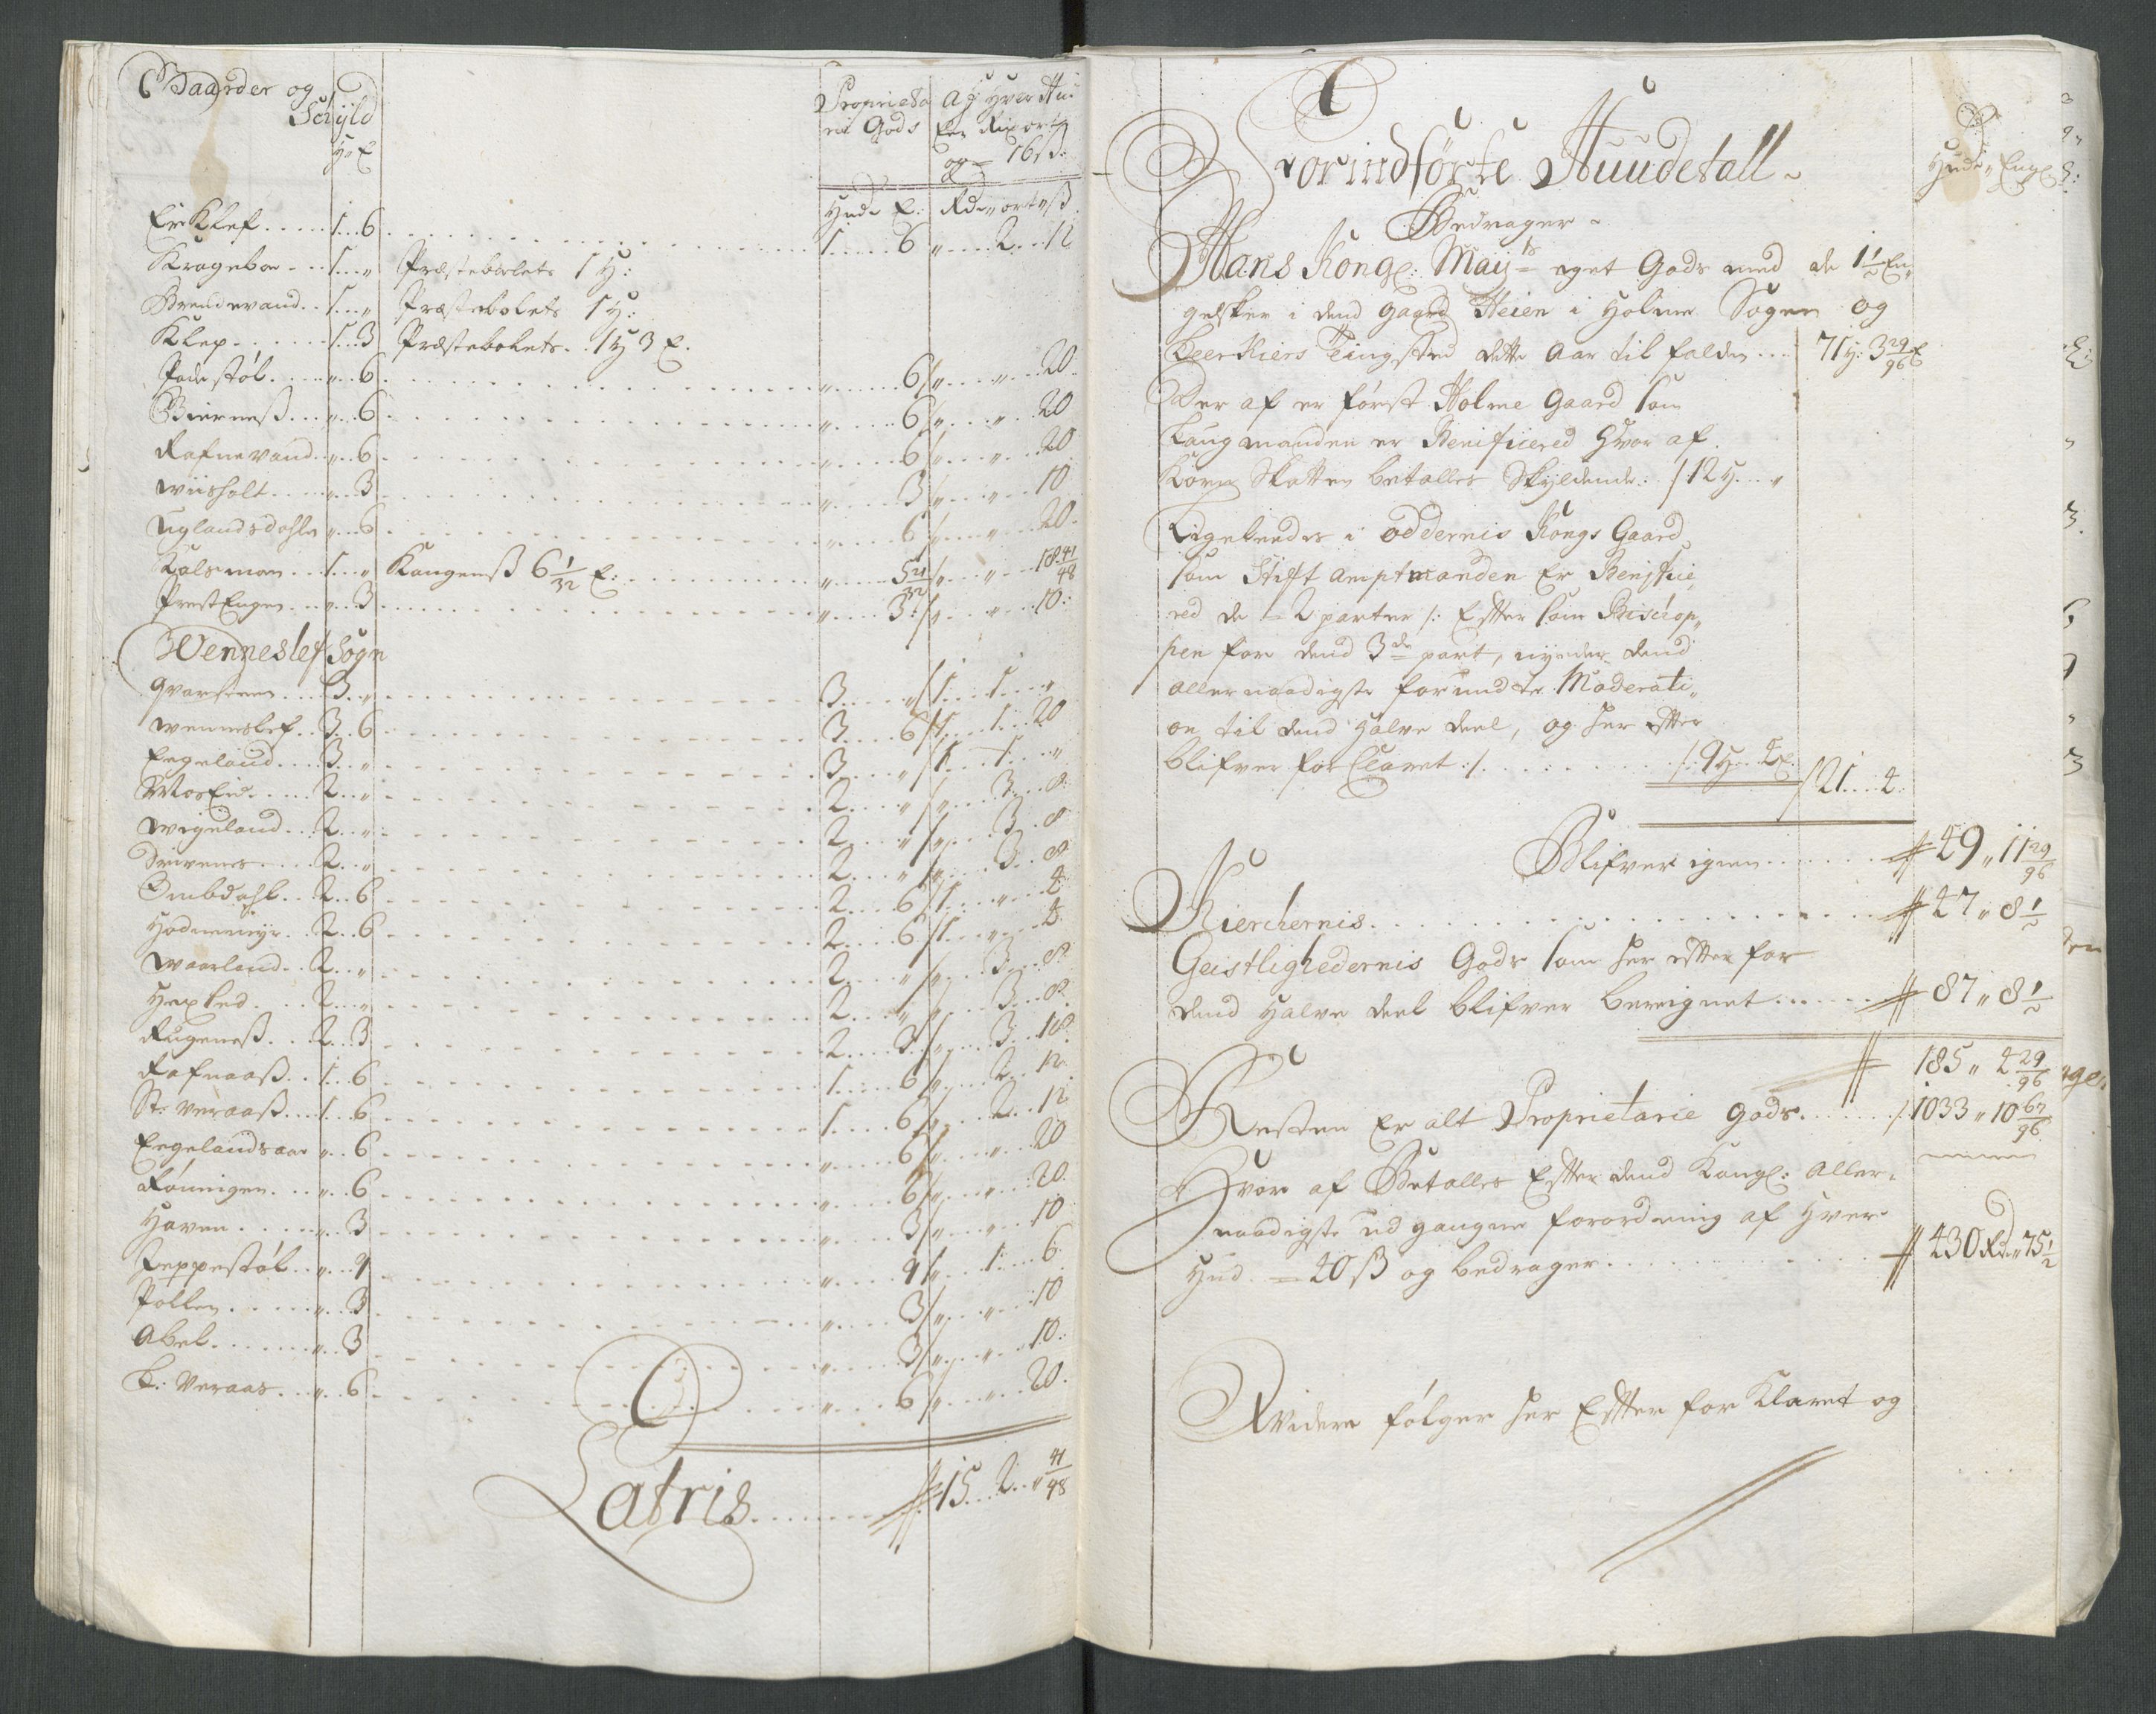 Gaarder og
Schyld
H: E
Proprieta
rie Gods
Af Hver Hu:
Een Rix ort
og 16 ß:
Hud: E: Rd „ ort „ ß
Erkklef ..... 1 .. 6 ..... 1 .... 6 „ .... 2 .. 12
Krageboe ... 1 ... „ Præstebolets 1 H:
Grundevand .. 1 ... „ Præstebolets 1 H:
Klep ..... 1 .. 3 Præstebolets .. 1 H 3 E.
Padestøl .... „ .. 6 ..... „ .... 6 „ ... „ .. 20
Bierneß ... „ .. 6 ..... „ .... 6 „ ... „ .. 20
Rafnevand .. „ .. 6 ..... „ .... 6 „ ... „ .. 20
Wiisholt .... „ .. 3 ..... „ .... 3 „ ... „ .. 10
Uglandsdahle „ .. 6 ..... „ .... 6 „ ... „ .. 20
Kalsman ... 1 ... „ Kongenß 6 1/32 E: ..... „ .... 5 21/32 „ ... „ .. 18 41/48
PrestEngen ... „ .. 3 ..... „ .... 3 „ ... „ .. 10
Wenneslef Sogn
Qvarsteen .... 3 .. „ ..... 3 .... „ 1 ... 1 ... „
Wenneslef .. 3 .. 6 ..... 3 .... 6 1 ... 1 .. 20
Eegeland .... 3 .. „ ..... 3 .... „ 1 ... 1 ... „
MosEid ..... 2 .. „ ..... 2 .... „ „ ... 3 .. 8
Wigeland ... 2 .. „ ..... 2 .... „ „ ... 3 .. 8
Drivenes .... 2 .. „ ..... 2 .... „ „ ... 3 .. 8
Ombdahl .. 2 .. 6 ..... 2 .... 6 1 ... „ .. 4
Hodnemÿr .. 2 .. 6 ..... 2 .... 6 1 ... „ .. 4
Waarland .. 2 .. „ ..... 2 .... „ „ ... 3 .. 8
Hexled .... 2 .. „ ..... 2 .... „ „ ... 3 .. 8
Rugeneß .. 2 .. 3 ..... 2 .... 3 „ ... 3 .. 18
Rafnaaß .. 1 .. 6 ..... 1 .... 6 „ ... 2 .. 12
St: Veraaß ... 1 .. 6 ..... 1 .... 6 „ ... 2 .. 12
Eegelandsaae „ .. 6 ..... „ .... 6 „ ... „ .. 20
Rønnigen ... „ .. 6 ..... „ .... 6 „ ... „ .. 20
Haven ..... „ .. 3 ..... „ .... 3 „ ... „ .. 10
Jeppestøl .. „ .. 9 ..... „ .... 9 „ ... 1 .. 6
Pollen ..... „ .. 3 ..... „ .... 3 „ ... „ .. 10
Abel ...... „ .. 3 ..... „ .... 3 „ ... „ .. 10
L: Veraas ... „ .. 6 ..... „ .... 6 „ ... „ .. 20
Latris ........ 15 .. 2 .. „ 41/48
Forindførte Huudetall
Hude „ Eng:
Bedrager
Hans Kongl: Maÿts eget Gods med de 1 1/2 En„
gelsker i dend gaard Heien i Holme Sogn og
Beerkiers Tingsted dette Aar til falden ... 71 H: 3 29/96 E
Der af er først Holme Gaard som
Laugmanden er Benificered Hvor af
Korn Skatten betalles Skyldende: 12 H ... „
Ligeleedes i Oddernis Kongs Gaard
som Stift amptmanden Er Benifice„
red de 2 parter /: Efter som Bischop„
pen for dend 3de part, nyeder dend
allernaadigste forundte Moderati„
on til dend halve deel, og her efter
blifver for Claret :/ ........ 9 H .. 4 E: 21 ... 4
Blifver igien ....... 49 „ 11 29/96
Kierchernis ........ 47 „ 8 1/2
Geistlighedernis Gods som her efter for
dend halve deel blifver beregnet ...... 87 „ 8 1/2
185 „ 4 29/96
Resten Er alt Proprietarie gods ...... 1033 „ 10 67/96
Hvor af Betalles Efter dend Kongl: Aller„
naadigste ud gangne forordning af Hver
Hud 40 ß og bedrager ........ 430 Rd „ 75 1/2
Widere følger her Efter for Klaret og